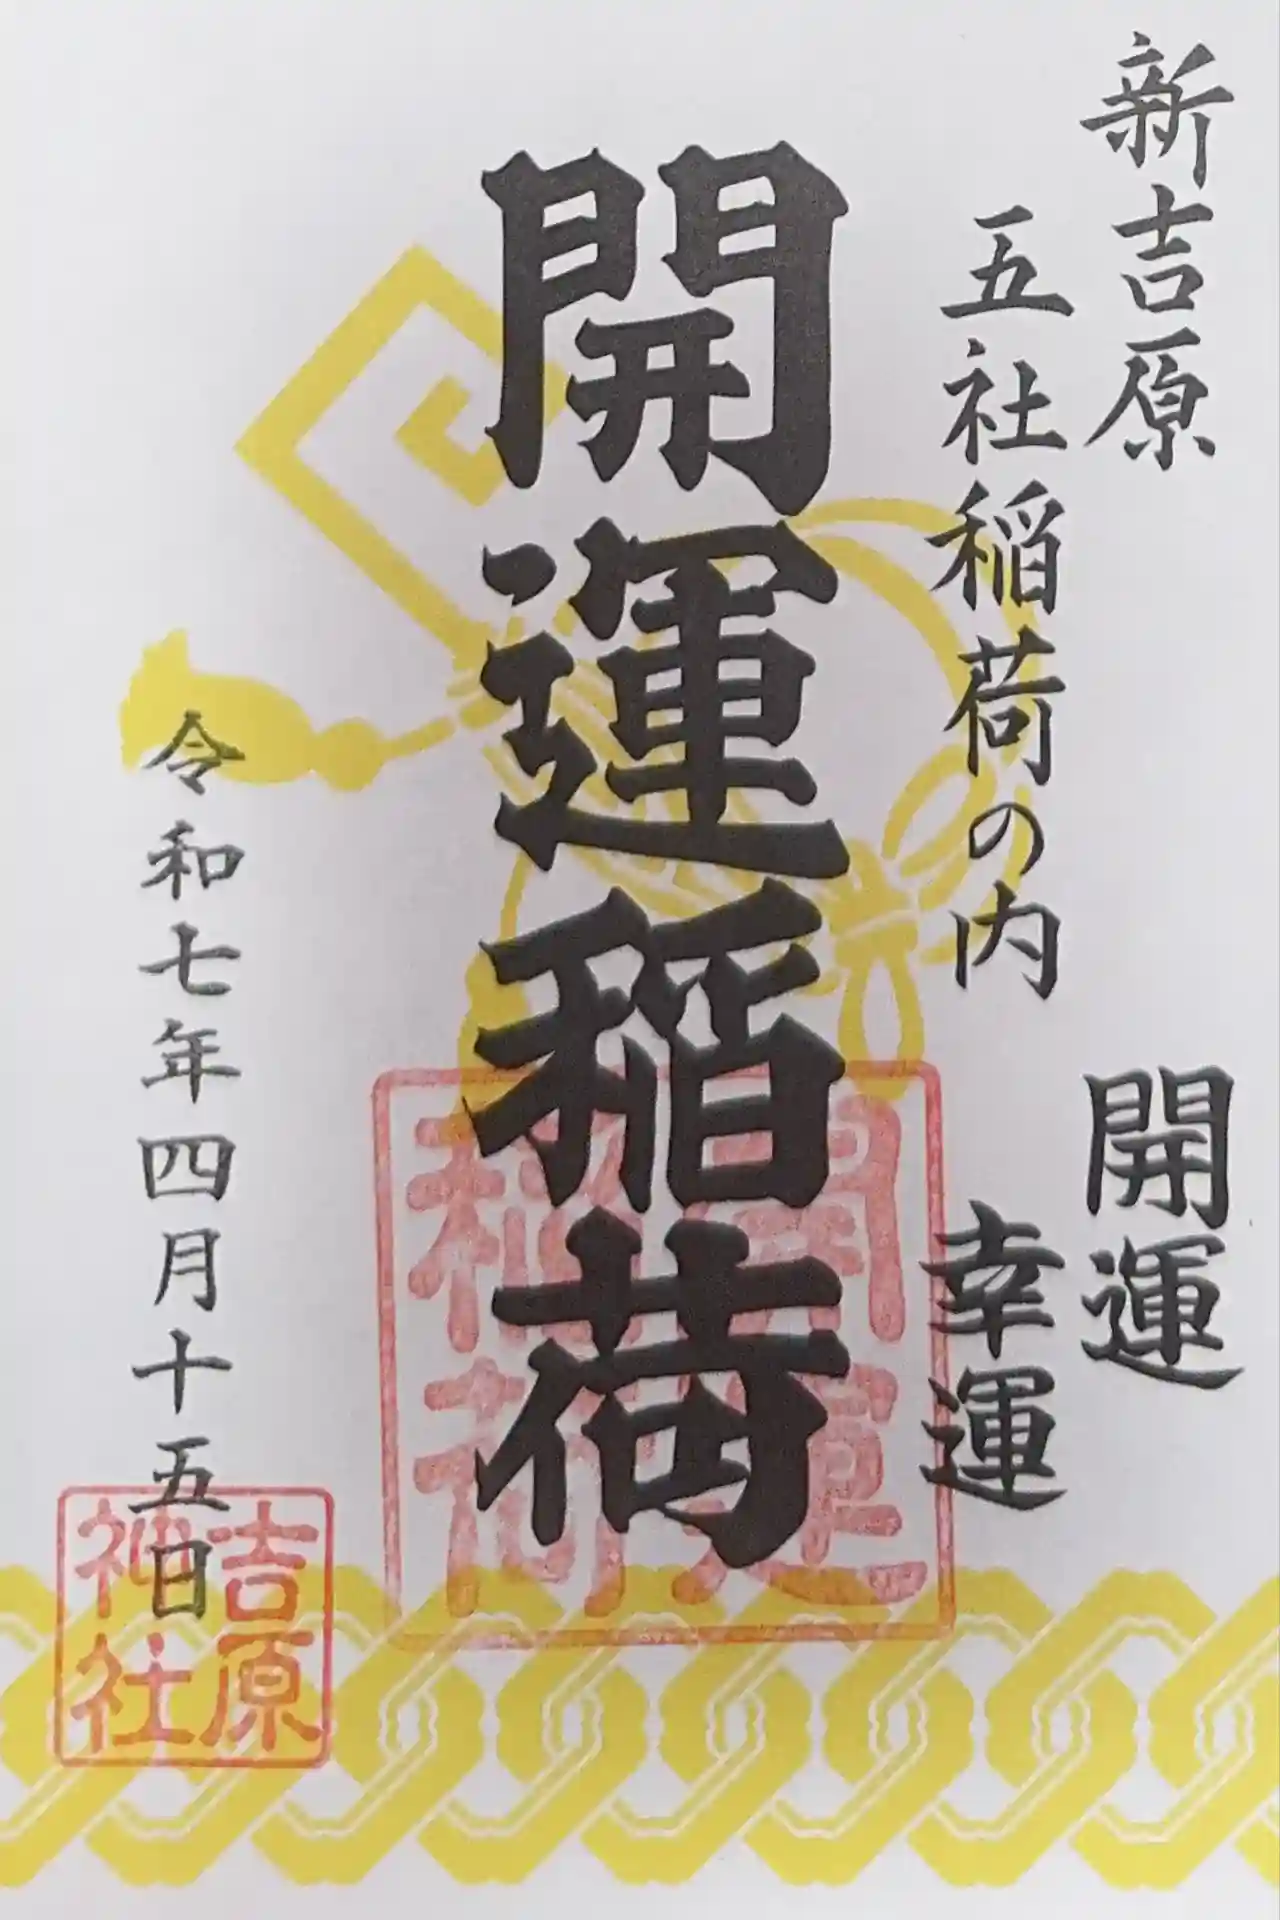 新吉原
五社稲荷の内
開運
幸運
開運稲荷
令和七年四月十五日
開運
稲荷
吉原
神社